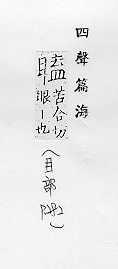 四聲篇海
瞌苦合切
眼丨也
(目部